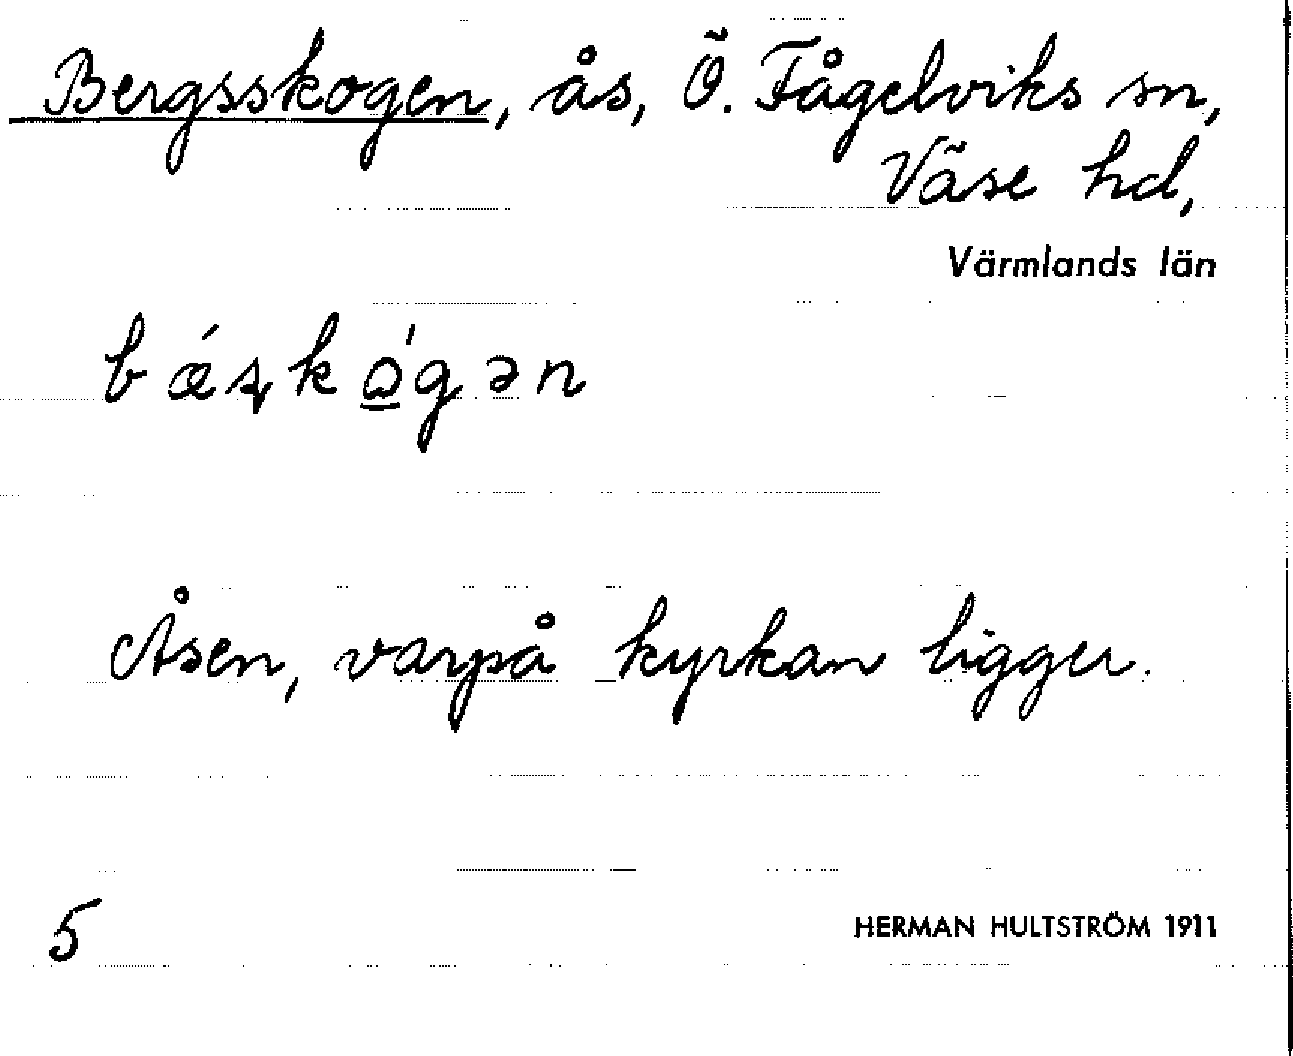 Bergsskogen, ås, Ö. Fågelviks sn,
Väse hd,
Värmlands län
bǽʂkώ̲gən
Åsen, varpå kyrkan ligger.
5
HERMAN HULTSTRÖM 1911